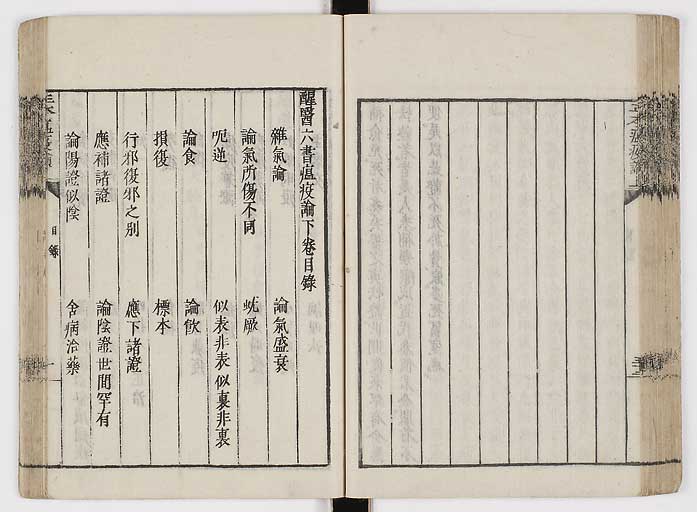 醒醫六書瘟疫論下卷目錄
雜氣論　論氣盛衰
論氣所傷不同　蚘厥
呃逆　似表非表似裏非裏
論食　論飲
損復　標本
行邪復邪之別　應下諸證
應補諸證　論陰證世間罕有
論陽證似陰　舍病治藥
目錄
一